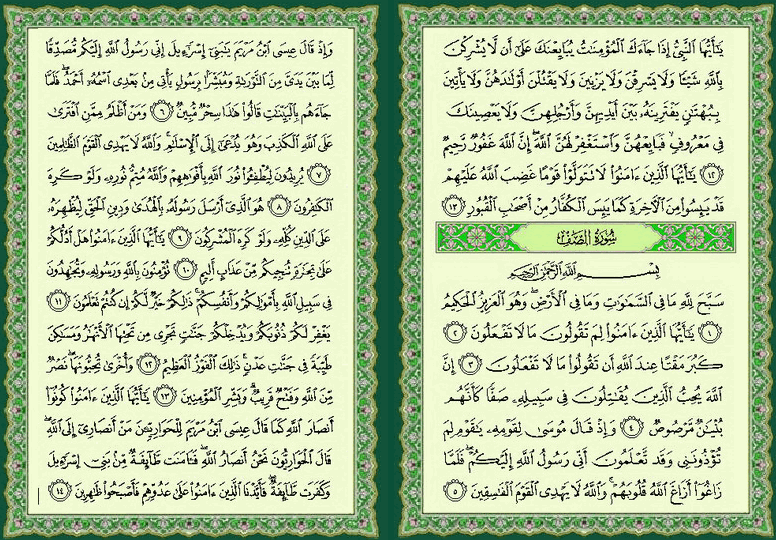 يَـٰٓأَيُّهَا ٱلنَّبِىُّ إِذَا جَآءَكَ ٱلْمُؤْمِنَـٰتُ يُبَايِعْنَكَ عَلَىٰٓ أَن لَّا يُشْرِكْنَ
بِٱللَّهِ شَيْـًٔا وَلَا يَسْرِقْنَ وَلَا يَزْنِينَ وَلَا يَقْتُلْنَ أَوْلَـٰدَهُنَّ وَلَا يَأْتِينَ
بِبُهْتَـٰنٍ يَفْتَرِينَهُۥ بَيْنَ أَيْدِيهِنَّ وَأَرْجُلِهِنَّ وَلَا يَعْصِينَكَ
فِى مَعْرُوفٍ ۙ فَبَايِعْهُنَّ وَٱسْتَغْفِرْ لَهُنَّ ٱللَّهَ ۖ إِنَّ ٱللَّهَ غَفُورٌ رَّحِيمٌ
١٢ يَـٰٓأَيُّهَا ٱلَّذِينَ ءَامَنُوا۟ لَا تَتَوَلَّوْا۟ قَوْمًا غَضِبَ ٱللَّهُ عَلَيْهِمْ
قَدْ يَئِسُوا۟ مِنَ ٱلْـَٔاخِرَةِ كَمَا يَئِسَ ٱلْكُفَّارُ مِنْ أَصْحَـٰبِ ٱلْقُبُورِ ١٣
سُورَةُ الصَّفِّ
بِسْمِ ٱللَّهِ ٱلرَّحْمَـٰنِ ٱلرَّحِيمِ
سَبَّحَ لِلَّهِ مَا فِى ٱلسَّمَـٰوَٰتِ وَمَا فِى ٱلْأَرْضِ ۖ وَهُوَ ٱلْعَزِيزُ ٱلْحَكِيمُ
١ يَـٰٓأَيُّهَا ٱلَّذِينَ ءَامَنُوا۟ لِمَ تَقُولُونَ مَا لَا تَفْعَلُونَ ٢
كَبُرَ مَقْتًا عِندَ ٱللَّهِ أَن تَقُولُوا۟ مَا لَا تَفْعَلُونَ ٣ إِنَّ
ٱللَّهَ يُحِبُّ ٱلَّذِينَ يُقَـٰتِلُونَ فِى سَبِيلِهِۦ صَفًّا كَأَنَّهُم
بُنْيَـٰنٌ مَّرْصُوصٌ ٤ وَإِذْ قَالَ مُوسَىٰ لِقَوْمِهِۦ يَـٰقَوْمِ لِمَ
تُؤْذُونَنِى وَقَد تَّعْلَمُونَ أَنِّى رَسُولُ ٱللَّهِ إِلَيْكُمْ ۖ فَلَمَّا
زَاغُوٓا۟ أَزَاغَ ٱللَّهُ قُلُوبَهُمْ ۚ وَٱللَّهُ لَا يَهْدِى ٱلْقَوْمَ ٱلْفَـٰسِقِينَ ٥
وَإِذْ قَالَ عِيسَى ٱبْنُ مَرْيَمَ يَـٰبَنِىٓ إِسْرَٰٓءِيلَ إِنِّى رَسُولُ ٱللَّهِ إِلَيْكُم مُّصَدِّقًا
لِّمَا بَيْنَ يَدَىَّ مِنَ ٱلتَّوْرَىٰةِ وَمُبَشِّرًۢا بِرَسُولٍ يَأْتِى مِنۢ بَعْدِى ٱسْمُهُۥٓ أَحْمَدُ ۖ فَلَمَّا
جَآءَهُم بِٱلْبَيِّنَـٰتِ قَالُوا۟ هَـٰذَا سِحْرٌ مُّبِينٌ ٦ وَمَنْ أَظْلَمُ مِمَّنِ ٱفْتَرَىٰ
عَلَى ٱللَّهِ ٱلْكَذِبَ وَهُوَ يُدْعَىٰٓ إِلَى ٱلْإِسْلَـٰمِ ۚ وَٱللَّهُ لَا يَهْدِى ٱلْقَوْمَ ٱلظَّـٰلِمِينَ
٧ يُرِيدُونَ لِيُطْفِـُٔوا۟ نُورَ ٱللَّهِ بِأَفْوَٰهِهِمْ وَٱللَّهُ مُتِمُّ نُورِهِۦ وَلَوْ كَرِهَ
ٱلْكَـٰفِرُونَ ٨ هُوَ ٱلَّذِىٓ أَرْسَلَ رَسُولَهُۥ بِٱلْهُدَىٰ وَدِينِ ٱلْحَقِّ لِيُظْهِرَهُۥ
عَلَى ٱلدِّينِ كُلِّهِۦ وَلَوْ كَرِهَ ٱلْمُشْرِكُونَ ٩ يَـٰٓأَيُّهَا ٱلَّذِينَ ءَامَنُوا۟ هَلْ أَدُلُّكُمْ
عَلَىٰ تِجَـٰرَةٍ تُنجِيكُم مِّنْ عَذَابٍ أَلِيمٍ ١٠ تُؤْمِنُونَ بِٱللَّهِ وَرَسُولِهِۦ وَتُجَـٰهِدُونَ
فِى سَبِيلِ ٱللَّهِ بِأَمْوَٰلِكُمْ وَأَنفُسِكُمْ ۚ ذَٰلِكُمْ خَيْرٌ لَّكُمْ إِن كُنتُمْ تَعْلَمُونَ ١١
يَغْفِرْ لَكُمْ ذُنُوبَكُمْ وَيُدْخِلْكُمْ جَنَّـٰتٍ تَجْرِى مِن تَحْتِهَا ٱلْأَنْهَـٰرُ وَمَسَـٰكِنَ
طَيِّبَةً فِى جَنَّـٰتِ عَدْنٍ ۚ ذَٰلِكَ ٱلْفَوْزُ ٱلْعَظِيمُ ١٢ وَأُخْرَىٰ تُحِبُّونَهَا ۖ نَصْرٌ
مِّنَ ٱللَّهِ وَفَتْحٌ قَرِيبٌ ۗ وَبَشِّرِ ٱلْمُؤْمِنِينَ ١٣ يَـٰٓأَيُّهَا ٱلَّذِينَ ءَامَنُوا۟ كُونُوٓا۟
أَنصَارَ ٱللَّهِ كَمَا قَالَ عِيسَى ٱبْنُ مَرْيَمَ لِلْحَوَارِيِّـۧنَ مَنْ أَنصَارِىٓ إِلَى ٱللَّهِ ۖ
قَالَ ٱلْحَوَارِيُّونَ نَحْنُ أَنصَارُ ٱللَّهِ ۖ فَـَٔامَنَت طَّآئِفَةٌ مِّنۢ بَنِىٓ إِسْرَٰٓءِيلَ
وَكَفَرَت طَّآئِفَةٌ ۖ فَأَيَّدْنَا ٱلَّذِينَ ءَامَنُوا۟ عَلَىٰ عَدُوِّهِمْ فَأَصْبَحُوا۟ ظَـٰهِرِينَ ١٤